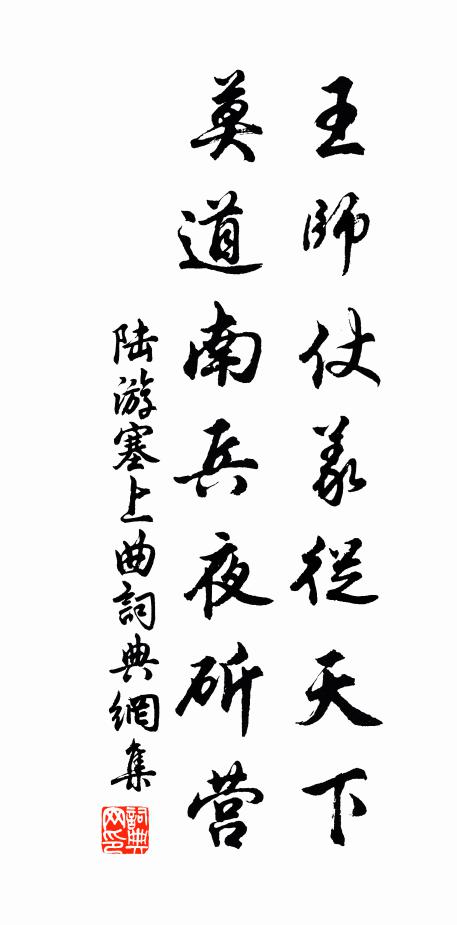 王師仗義從天下
莫道南兵夜斫营
陆游塞上曲詞典網集
詞典网印